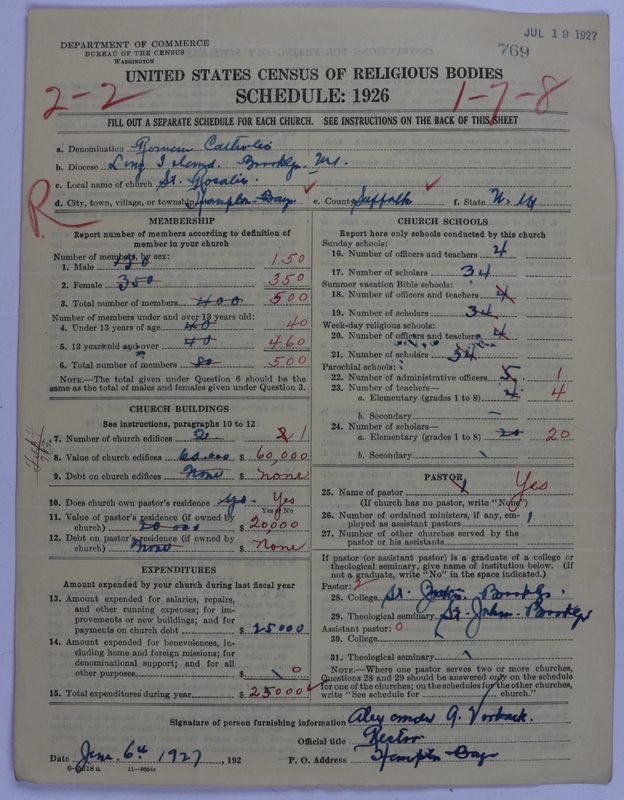 JUL 19 1927
769
DEPARTMENT OF COMMERCE
BUREAU OF THE CENSUS
WASHINGTON
UNITED STATES CENSUS OF RELIGIOUS BODIES
SCHEDULE: 1926
2-2
1-7-8
FILL OUT A SEPARATE SCHEDULE FOR EACH CHURCH. SEE INSTRUCTIONS ON THE BACK OF THIS SHEET
a. Denomination Roman Catholic
b. Diocese Long Island. Brooklyn. NY.
c. Local name of church St. Rosalie
d. City, town, village, or township Hampton Bays e. County Suffolk f. State N. Y
R
MEMBERSHIP
Report number of members according to definition of
member in your church
Number of members, by sex:
1. Male 150
2. Female 350 350
3. Total number of members 400 500
Number of members under and over 13 years old:
4. Under 13 years of age 40 40
5. 13 years old and over 40 460
6. Total number of members 80 500
NOTE.—The total given under Question 6 should be the
same as the total of males and females given under Question 3.
CHURCH BUILDINGS
See instructions, paragraphs 10 to 12
7. Number of church edifices 2 1
8. Value of church edifices 60,000 $ 60,000
9. Debt on church edifices None $ none
10. Does church own pastor's residence Yes. Yes
Yes or No
11. Value of pastor's residence (if owned by
church) 20 000 $ 20000
12. Debt on pastor's residence (if owned by
church) None $ none
EXPENDITURES
Amount expended by your church during last fiscal year
13. Amount expended for salaries, repairs,
and other running expenses; for im-
provements or new buildings; and for
payments on church debt $ 25000
14. Amount expended for benevolences, in-
cluding home and foreign missions; for
denominational support; and for all
other purposes $ 0
15. Total expenditures during year $ 25000
CHURCH SCHOOLS
Report here only schools conducted by this church
Sunday schools:
16. Number of officers and teachers 4
17. Number of scholars 34
Summer vacation Bible schools:
18. Number of officers and teachers 4
19. Number of scholars 34
Week-day religious schools:
20. Number of officers and teachers 4
21. Number of scholars 34
Parochial schools:
22. Number of administrative officers 5 1
23. Number of teachers—
a. Elementary (grades 1 to 8) 4
b. Secondary –
24. Number of scholars—
a. Elementary (grades 1 to 8) 20 20
b. Secondary
PASTOR
25. Name of pastor 1 Yes
(If church has no pastor, write "None")
26. Number of ordained ministers, if any, em-
ployed as assistant pastors 1
27. Number of other churches served by the
pastor or his assistants
If pastor (or assistant pastor) is a graduate of a college or
theological seminary, give name of institution below. (If
not a graduate, write "No" in the space indicated.)
Pastor: 2
28. College St. Johns. Brooklyn.
29. Theological seminary St. John. Brooklyn
Assistant pastor: 0
30. College
31. Theological seminary
NOTE.—Where one pastor serves two or more churches,
Questions 28 and 29 should be answered only on the schedule
for one of the churches; on the schedules for the other churches,
write "See schedule for church."
Signature of person furnishing information Alexander A.
Official title Rector
Date June 6th 1927, 192 P. O. Address Hampton Bays